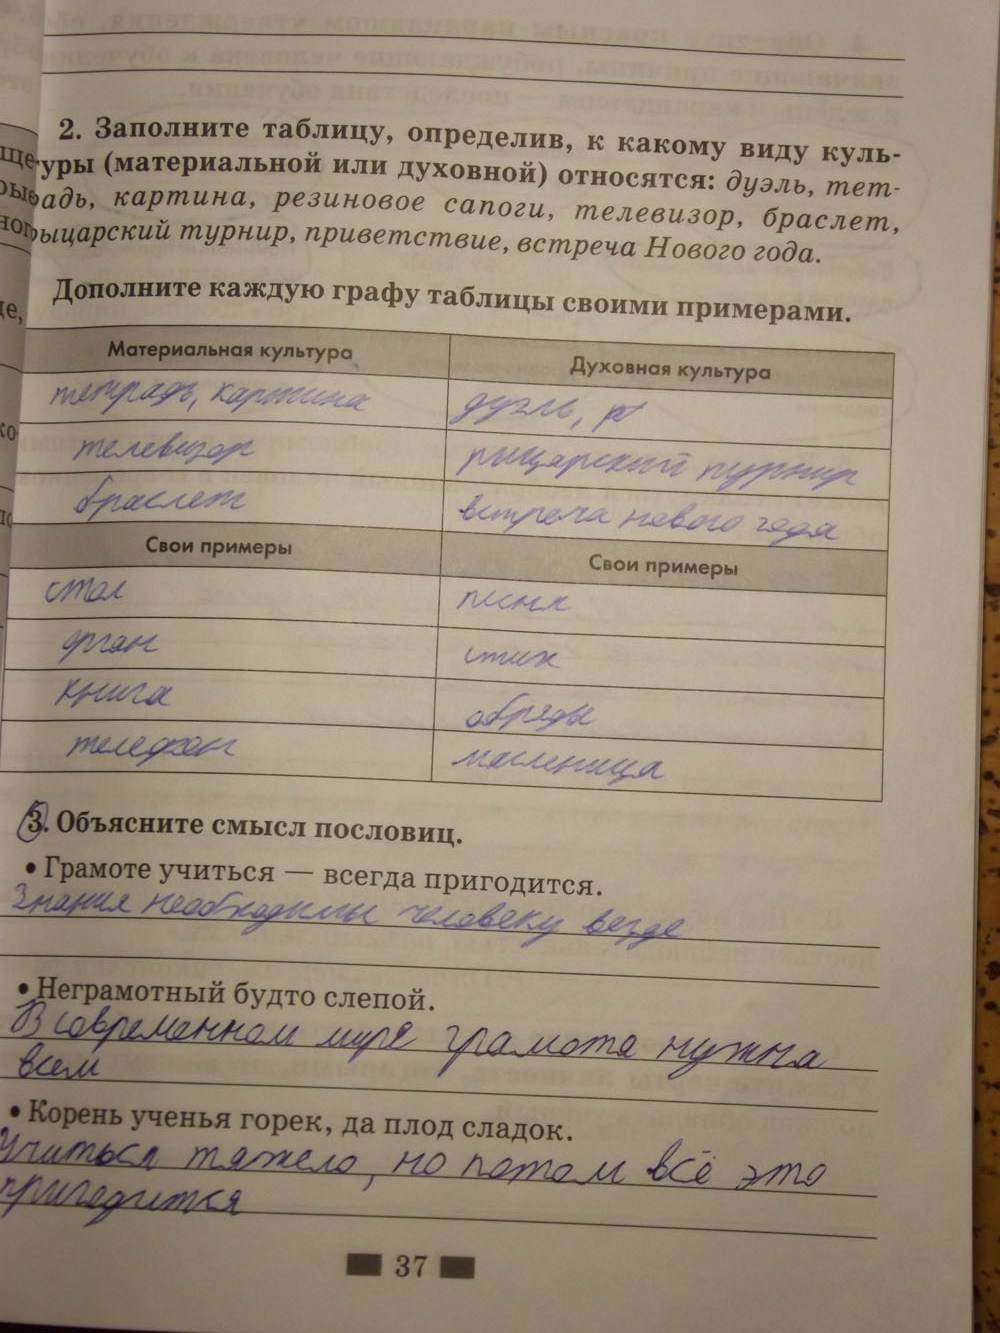 2. Заполните таблицу, определив, к какому виду куль-
уры (материальной или духовной) относятся: дуэль, тет-
радь, картина, резиновое сапоги, телевизор, браслет,
рыцарский турнир, приветствие, встреча Нового года.
Дополните каждую графу таблицы своими примерами.
Материальная культура
Духовная культура
тетрадь, картина
дуэль, р
телевизор
рыцарский турнир
браслет
встреча нового года
Свои примеры
Свои примеры
стол
песня
орган
стих
книга
обряды
телефон
масленица
3. Объясните смысл пословиц.
• Грамоте учиться — всегда пригодится.
Знания необходимы человеку везде
• Неграмотный будто слепой.
В современном мире грамота нужна
всем
• Корень ученья горек, да плод сладок.
Учиться тяжело, но потом всё это
пригодится
37